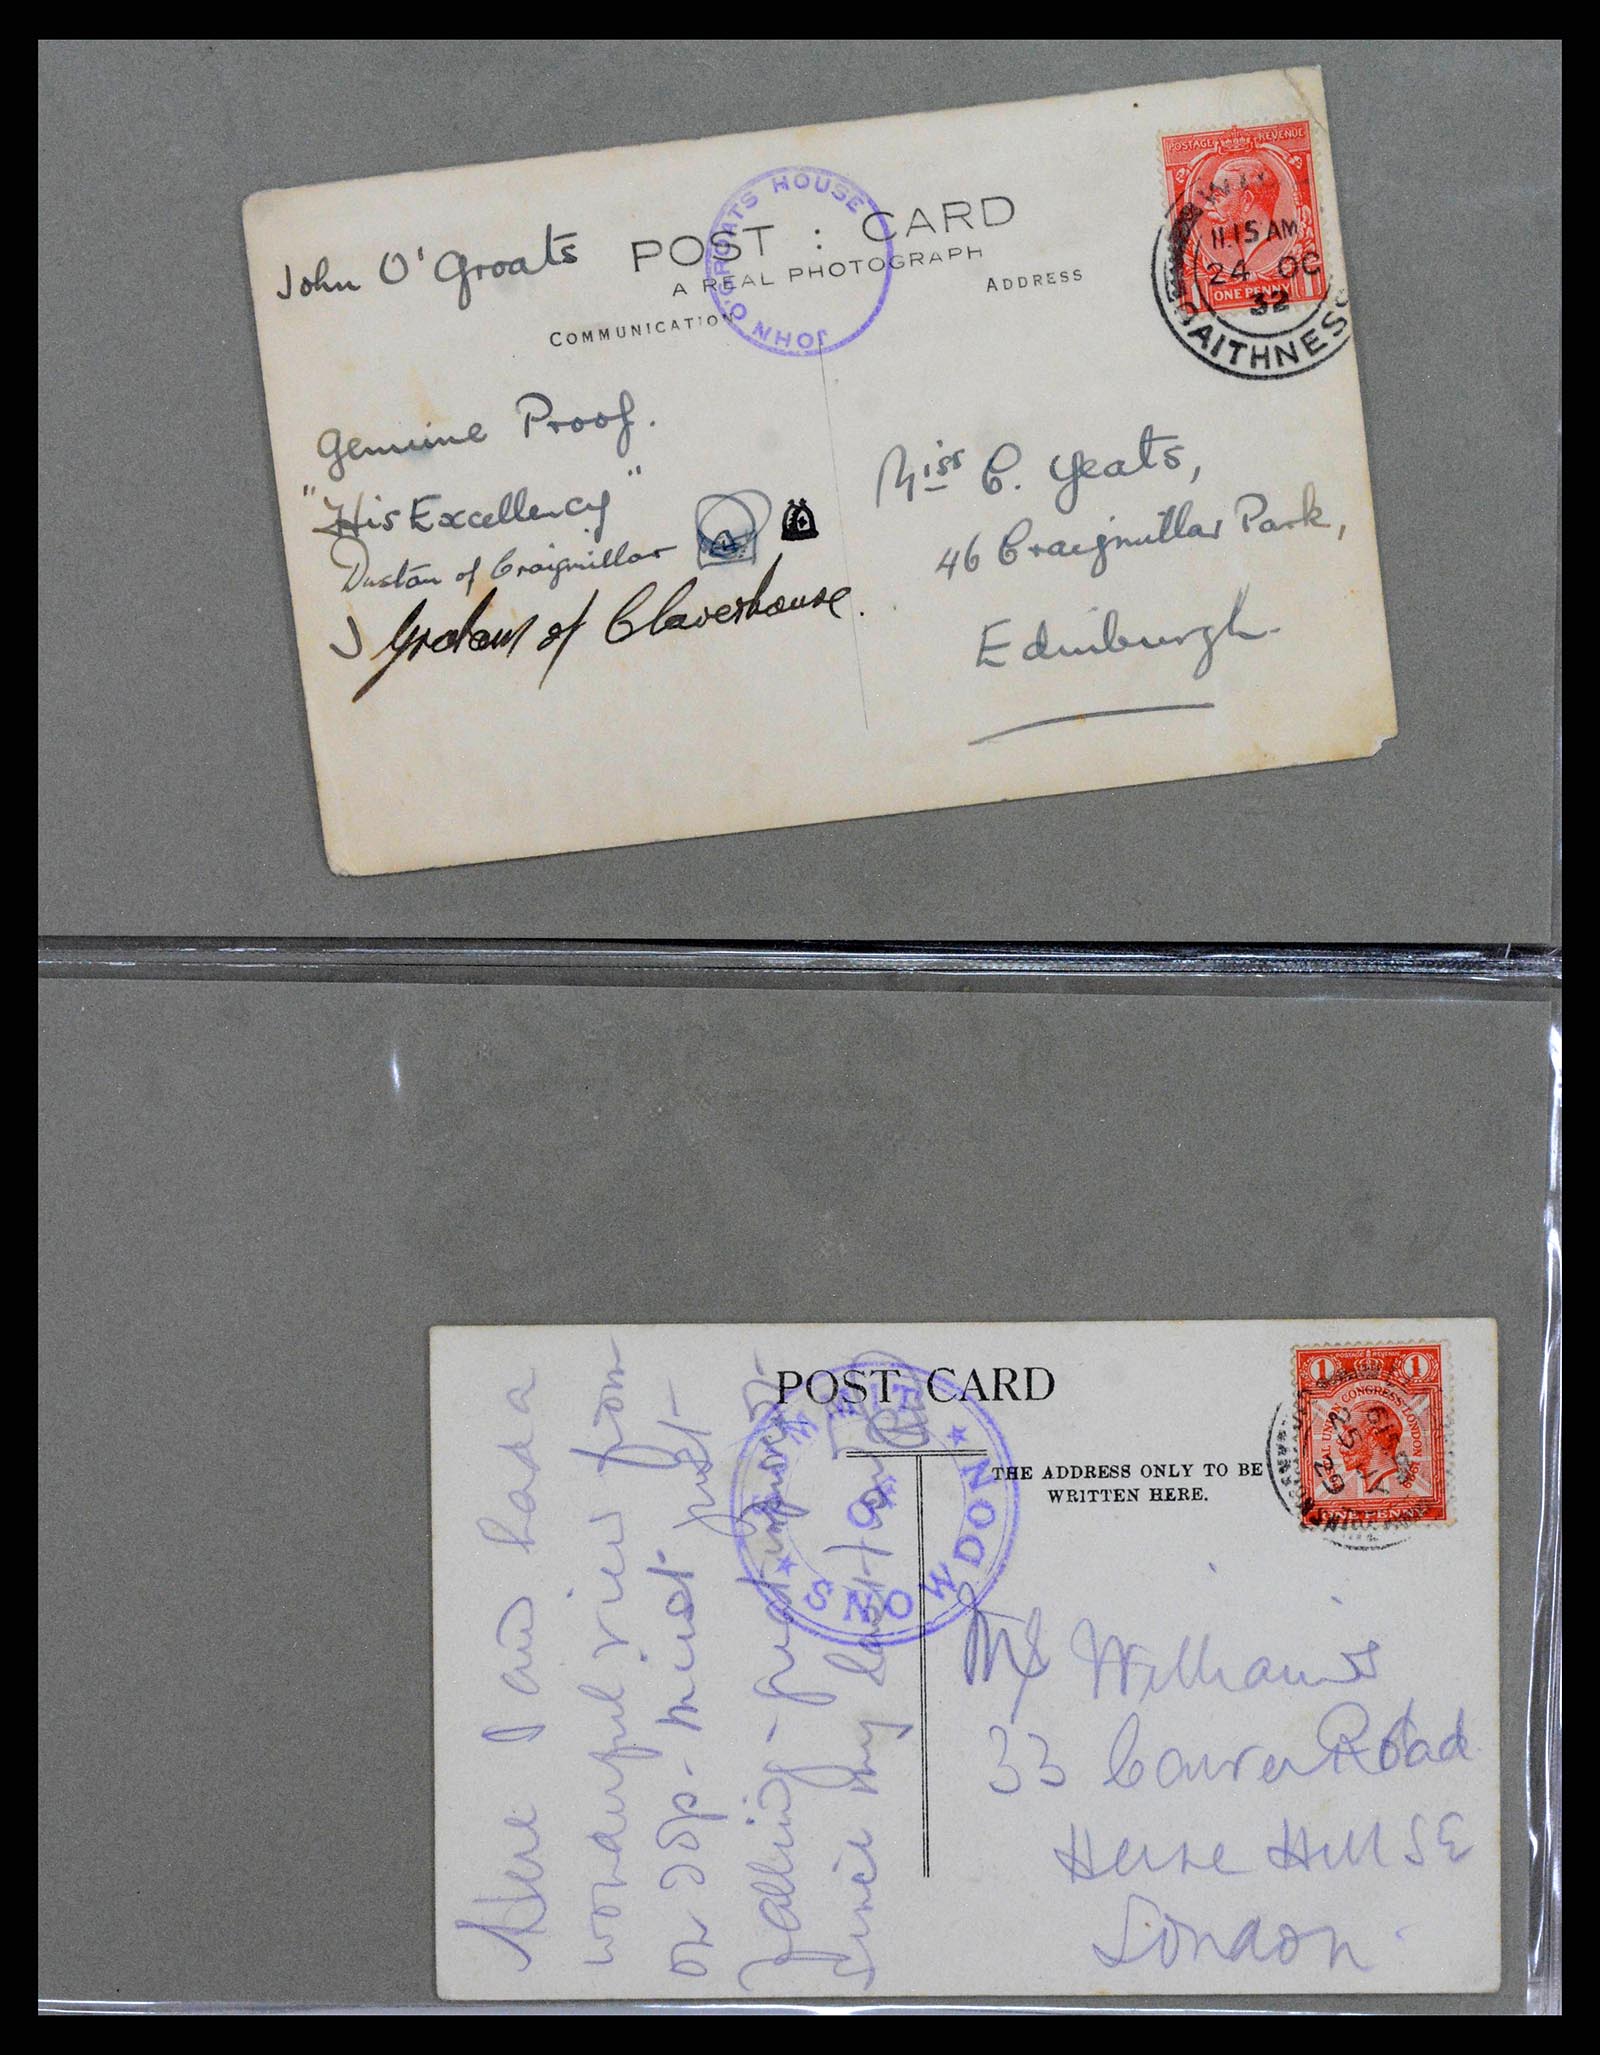 John O'Groats
POST : CARD
A REAL PHOTOGRAPH
COMMUNICATION
ADDRESS
JOHN O'GROATS HOUSE
POSTAGE REVENUE
ONE PENNY
11.15 AM
24 OC
32
CAITHNESS
Genuine Proof.
"His Excellency"
of Craigmillar
J Graham of Claverhouse.
Miss C. Yeats,
46 Craigmillar Park,
Edinburgh.
POST CARD
THE ADDRESS ONLY TO BE
WRITTEN HERE.
SUMMIT
SNOWDON
1 POSTAGE REVENUE 1
POSTAL UNION CONGRESS LONDON
1929
ONE PENNY
25
29
Here I am had a
wonderful view from
on top - mist just
falling - great
since my last
Williams
33 Road
Herne Hill SE
London.